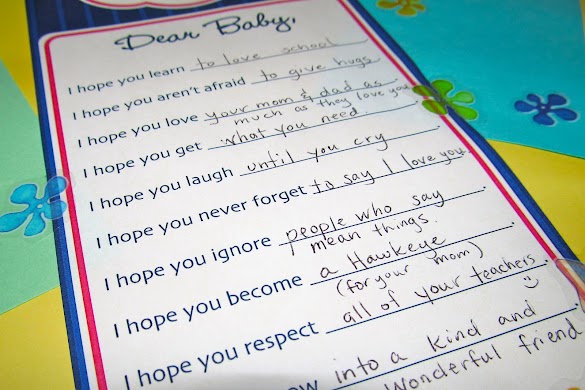 Dear Baby,
I hope you learn to love school
I hope you aren't afraid to give hugs
I hope you love your mom & dad as
much as they love you.
I hope you get what you need.
I hope you laugh until you cry.
I hope you never forget to say I love you.
I hope you ignore people who say
mean things.
I hope you become a Hawkeye.
(for your mom)
I hope you respect all of your teachers.
into a kind and
wonderful friend